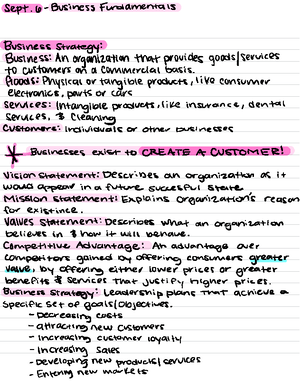 Sept. 6 - Business Fundamentals
Business Strategy:
Business: An organization that provides goods/services
to customers on a commercial basis.
Goods: Physical or tangible products, like consumer
electronics, parts or cars
Services: Intangible products, like insurance, dental
services, & cleaning
Customers: Individuals or other businesses
* Businesses exist to CREATE A CUSTOMER!
Vision Statement: Describes an organization as it
would appear in a future succesful state.
Mission Statement: Explains organization's reason
for existince.
Values Statement: Describes what an organization
believes in & how it will behave.
Competitive Advantage: An advantage over
competitors gained by offering consumers greater
value, by offering either lower prices or greater
benefits & services that justify higher prices.
Business Strategy: Leadership plans that achieve a
specific set of goals/objectives.
- Decreasing costs
- attracting new customers
- Increasing customer loyalty
- Increasing sales
- Developing new products/services
- Entering new markets